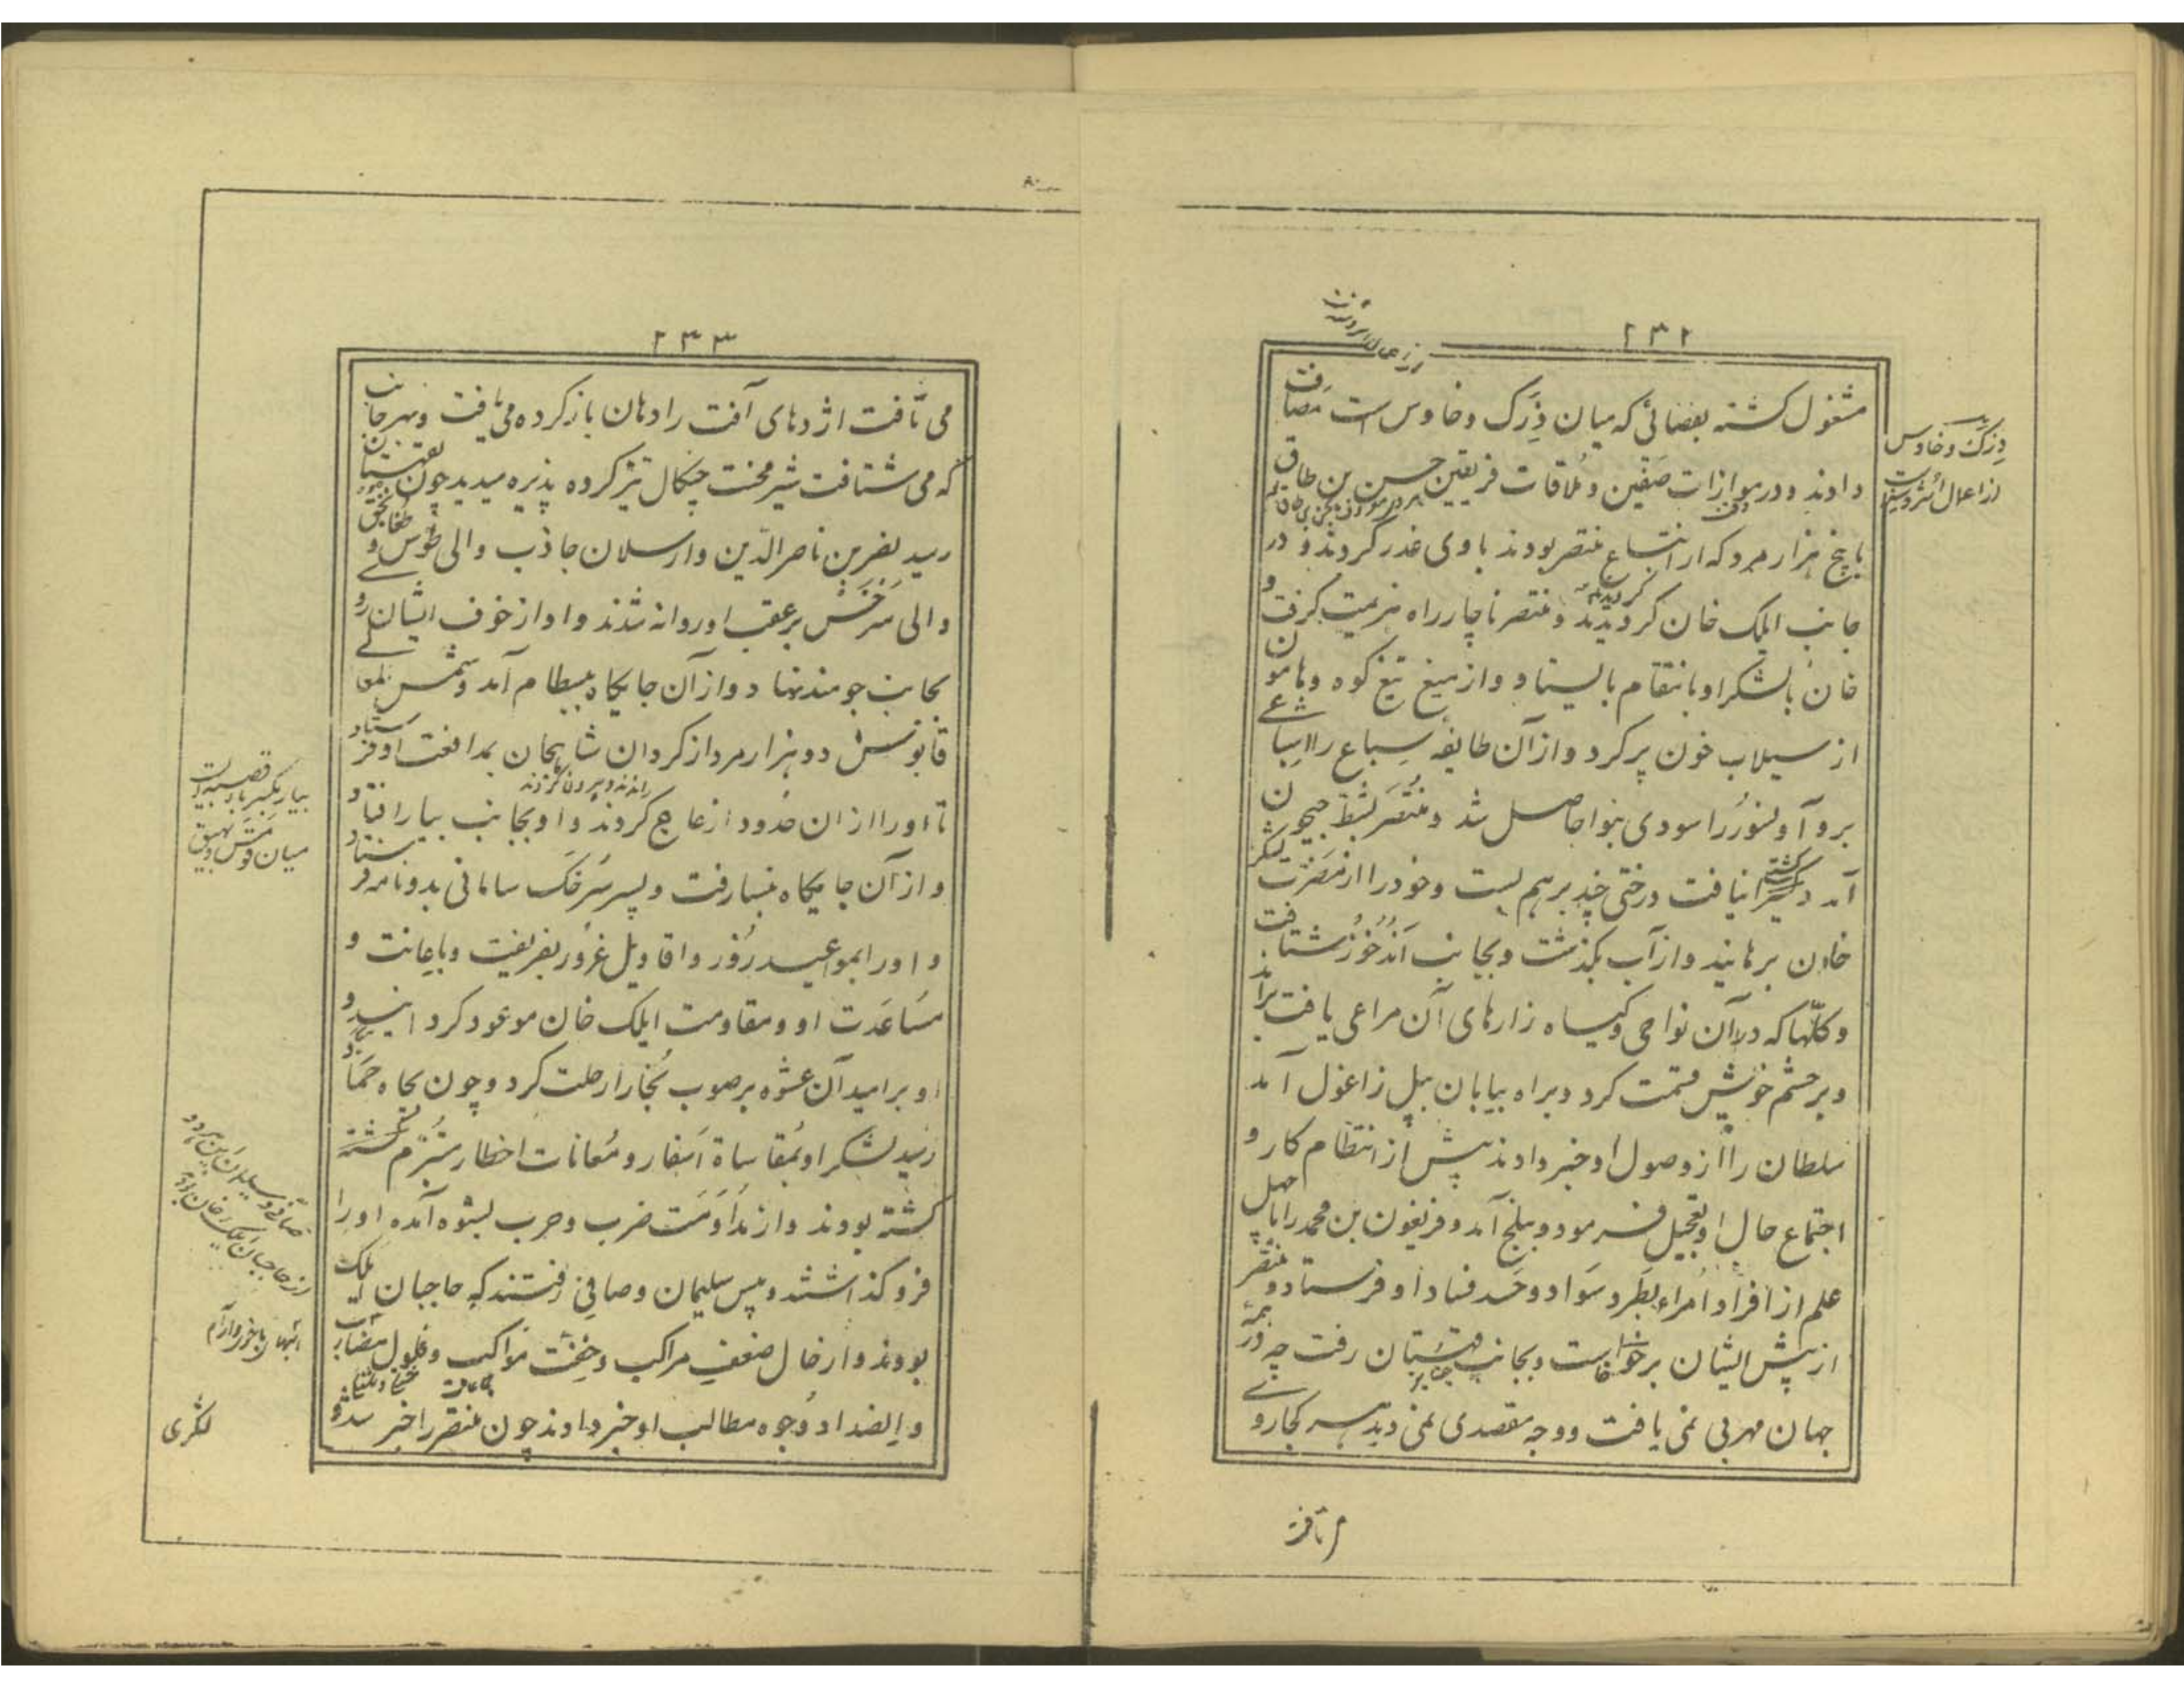 ۲۳۲
مشغول گشته بفضائی که میان دِزَک و خاوس است مصاف
دادند و در موازات صفین و ملاقات فریقین حسن بن طاق
با پنج هزار مرد که از اتباع منتصر بودند با وی غدر کردند و در
جانب ایلک خان گردیدند و منتصر ناچار راه هزیمت گرفت و
خان با لشکر او بانتقام بایستاد و از میغ تیغ کوه و هامون
از سیلاب خون پر کرد و از آن طایفه سباع را اشباعی
بر و آ و نسور را سودی بنوا حاصل شد و منتصر بشط جیحون
آمد و کشتی نیافت درختی چند بر هم بست و خود را از مضرت لشکر
خان برهانید و از آب بگذشت و بجانب اندخوذ شتافت
و گلّها که در آن نواحی و گیاه زارهای آن مراعی یافت براند
و بر حشم خویش قسمت کرد و براه بیابان بپل زاغول آمد
سلطان را از وصول او خبر دادند پیش از انتظام کار و
اجتماع حال او تعجیل فرمود و ببلخ آمد و فریغون بن محمد را با چهل
علم از افراد امراء بطرد سواد و حسد فساد او فرستاد و منتصر
از پیش ایشان برخاست و بجانب قهستان رفت چه در همه
جهان مهربی نمی یافت و وجه مقصدی نمی دید بهر کجا روی
دزک و خاوس
از اعمال اشروسنه است
می تافت
۲۳۳
می تافت اژدهای آفت را دهان باز کرده می یافت و بهر جانب
که می شتافت شیر محنت چنگال تیز کرده پذیره میدید چون بقهستان
رسید نصر بن ناصر الدین و ارسلان جاذب والی طوس و طغانجق
والی سرخس بر عقب او روانه شدند و او از خوف ایشان روی
بجانب جومند نهاد و از آن جایگاه ببسطام آمد و شمس المعالی
قابوس دو هزار مرد از کردان شاهجان بمدافعت او فرستاد
تا او را از ان حدود ازعاج کردند و او بجانب بیار افتاد و
و از آن جایگاه بنسا رفت و پسر سرخک سامانی بدو نامه فرستاد
و او را بمواعید زور و اقاویل غرور بفریفت و باعانت و
مساعدت او و مقاومت ایلک خان موعود کرد
او بر امید آن عشوه بر صوب بخارا رحلت کرد و چون بچاه حماد
رسید لشکر او بمقاساة اسفار و معانات اخطار متبرم
گشته بودند و از مداومت ضرب و حرب بستوه آمده او را
فرو گذاشتند و پیش سلیمان و صافی رفتند که حاجبان ایلک
بودند و از حال ضعف مراکب و خفت مواکب و فلول مضارب
و انسداد وجوه مطالب او خبر دادند چون منتصر را خبر شد و
راندند و بیرون کردند
میان قومس و بیهق
لشکری